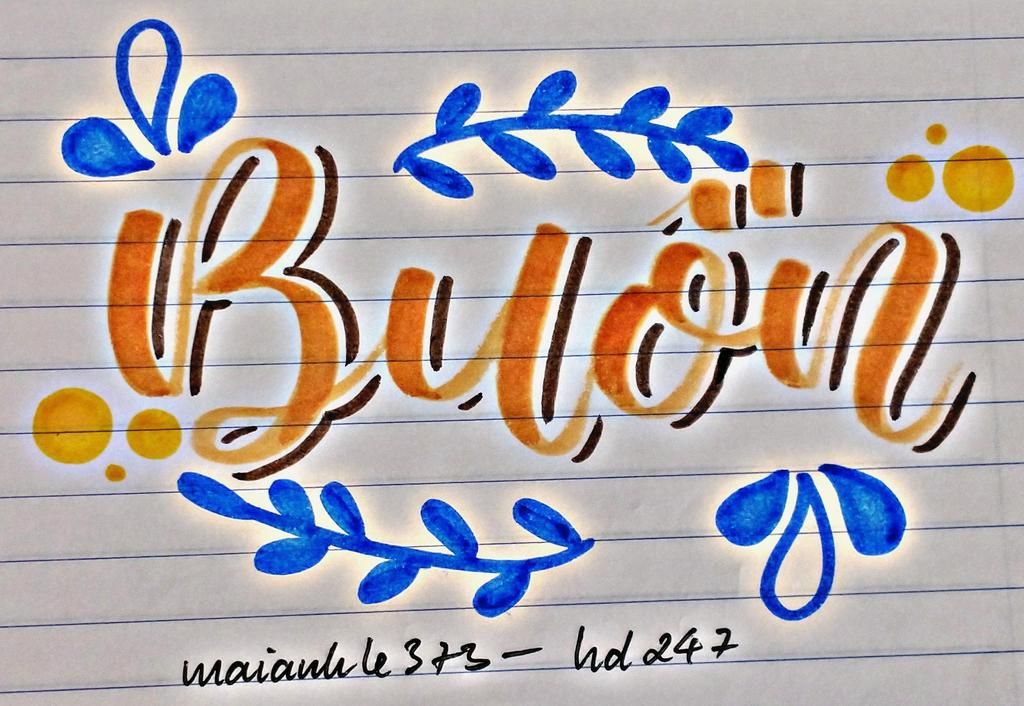 Buồn
maianhle373 – hd247